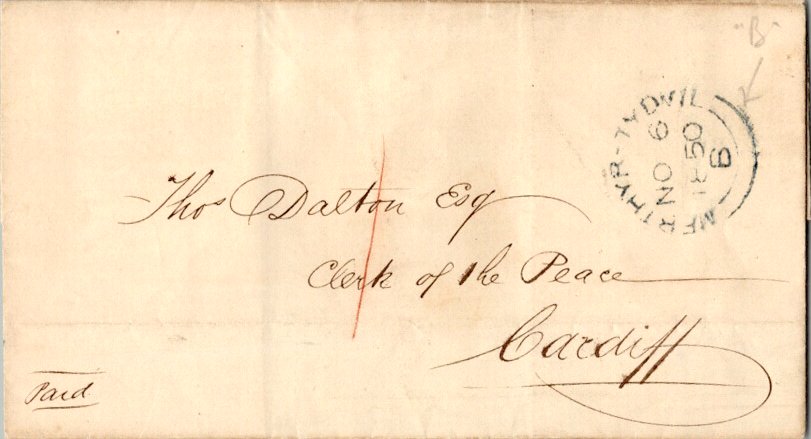 "B"
MERTHYR-TYDVIL
NO 6
1850
B
Thos Dalton Esq
Clerk of the Peace
Cardiff
Paid